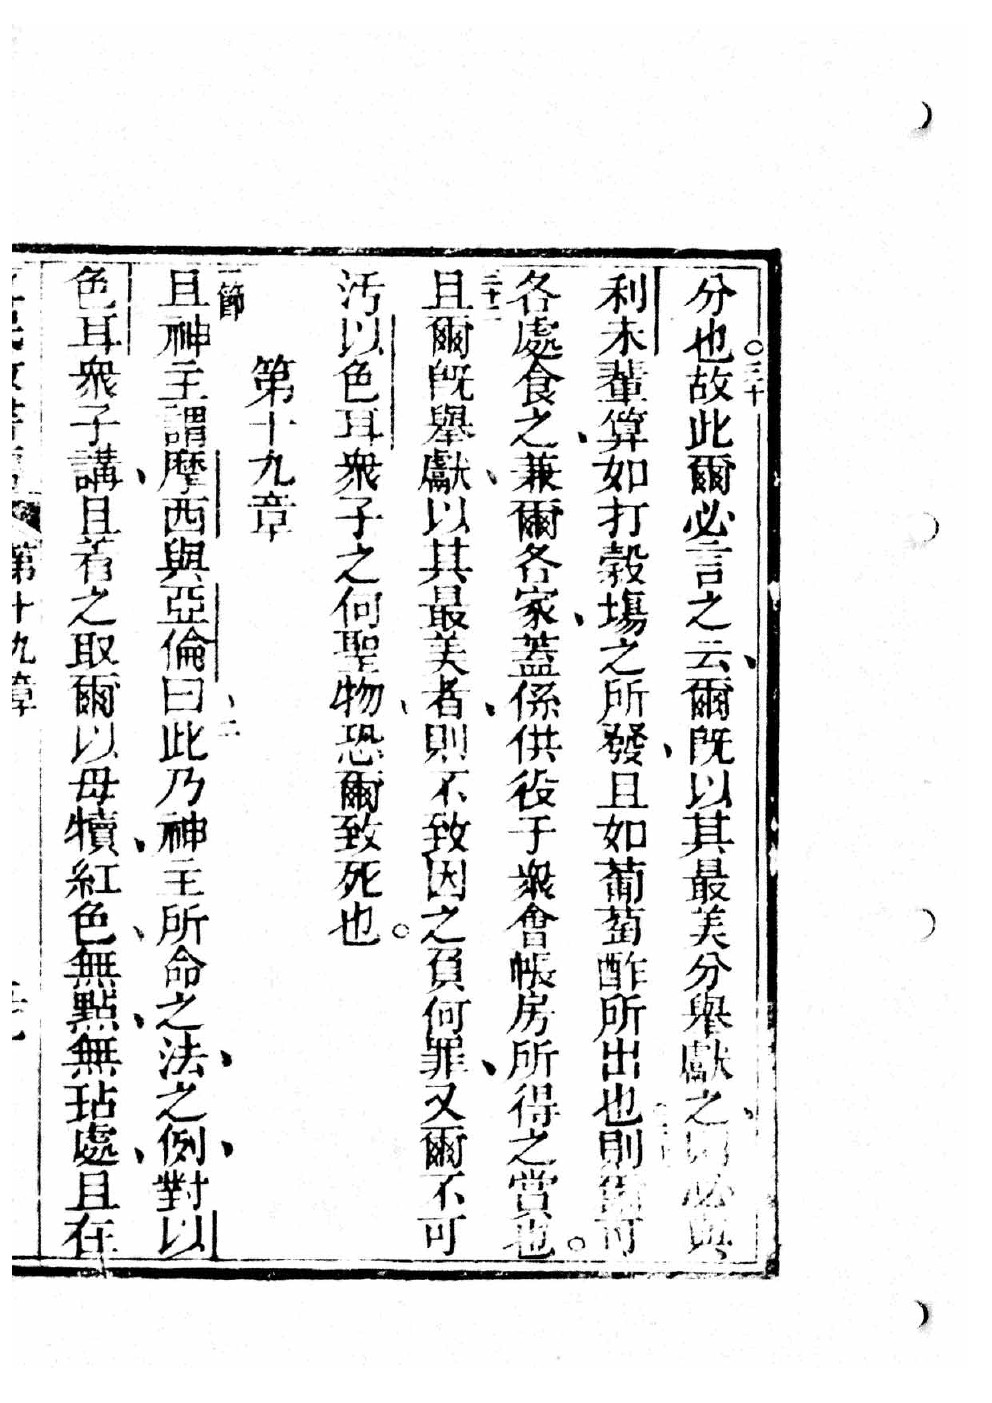 分也。三十故此爾必言之云、爾既以其最美分舉獻之、必與
利未輩算如打榖塲之所發、且如葡萄酢所出也則爾可
各處食之、兼爾各家、蓋係供役于衆會帳房所得之賞也。
且爾既舉獻、以其最美者、則不致因之負何罪、又爾不可
汚以色耳衆子之何聖物、恐爾致死也。
第十九章
一節
且神主謂摩西與亞倫曰、二此乃神主所命之法、之例、對以
色耳衆子講、且着之取爾以母犢、紅色、無點、無玷處、且在
第十九章